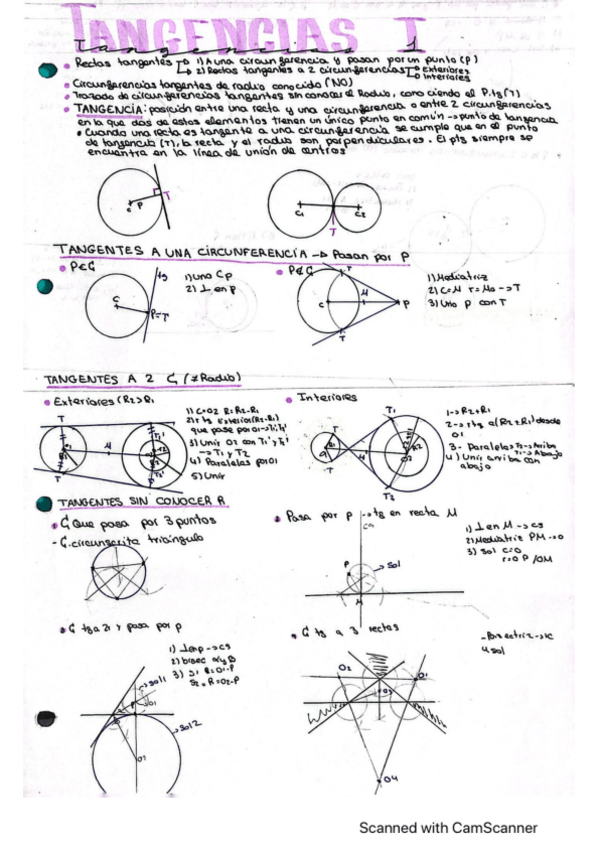 TANGENCIAS I
Tangencias 1
Rectas tangentes → 1) A una circunferencia y pasan por un punto (P)
→ 2) Rectas tangentes a 2 circunferencias → Exteriores
→ Interiores
Circunferencias tangentes de radio conocido (NO)
Trazado de circunferencias tangentes sin conocer el Radio, conociendo el P.tg(T)
TANGENCIA: posición entre una recta y una circunferencia o entre 2 circunferencias
en la que dos de estos elementos tienen un único punto en común → punto de tangencia
Cuando una recta es tangente a una circunferencia se cumple que en el punto
de tangencia (T), la recta y el radio son perpendiculares. El ptg siempre se
encuentra en la línea de unión de centros
P T
C1 C2
T
TANGENTES A UNA CIRCUNFERENCIA → Pasan por P
P∈C
tg
1) Uno CP
2) ⊥ en P
C
P=T
P∉C
T
C M P
T
1) Mediatriz
2) C=M r=Mo → T
3) Uno P con T
TANGENTES A 2 C (≠ Radio)
Exteriores (R2>R1
1) C=O2 R=R2-R1
2) rtg Exterior(R2-R1)
que pase por O1 → T1'T2'
3) Unir O2 con T1' y T2'
→ T1 y T2
4) Paralelas por O1
5) Unir
Interiores
T1
T2
1 → R2+R1
2 → rtg a (R2+R1) desde
O1
3 - Paralelas T2 → Arriba
T1 → Abajo
4) Unir arriba con
abajo
TANGENTES SIN CONOCER R
C Que pasa por 3 puntos
- C. circunscrita triángulo
Pasa por P → tg en recta M
CS
P
Sol
M
1) ⊥ en M → CS
2) Mediatriz PM → O
3) Sol C=O
r=OP/OM
C tg a 2r y pasa por P
1) ⊥ en P → CS
2) bisec α y β
3) S1 R=O1-P
S2 → R=O2-P
Sol1
P
O1
Sol2
O2
C tg a 3 rectas
- Bisectriz → IC
4 sol
O2
O1
O3
O4
Scanned with CamScanner